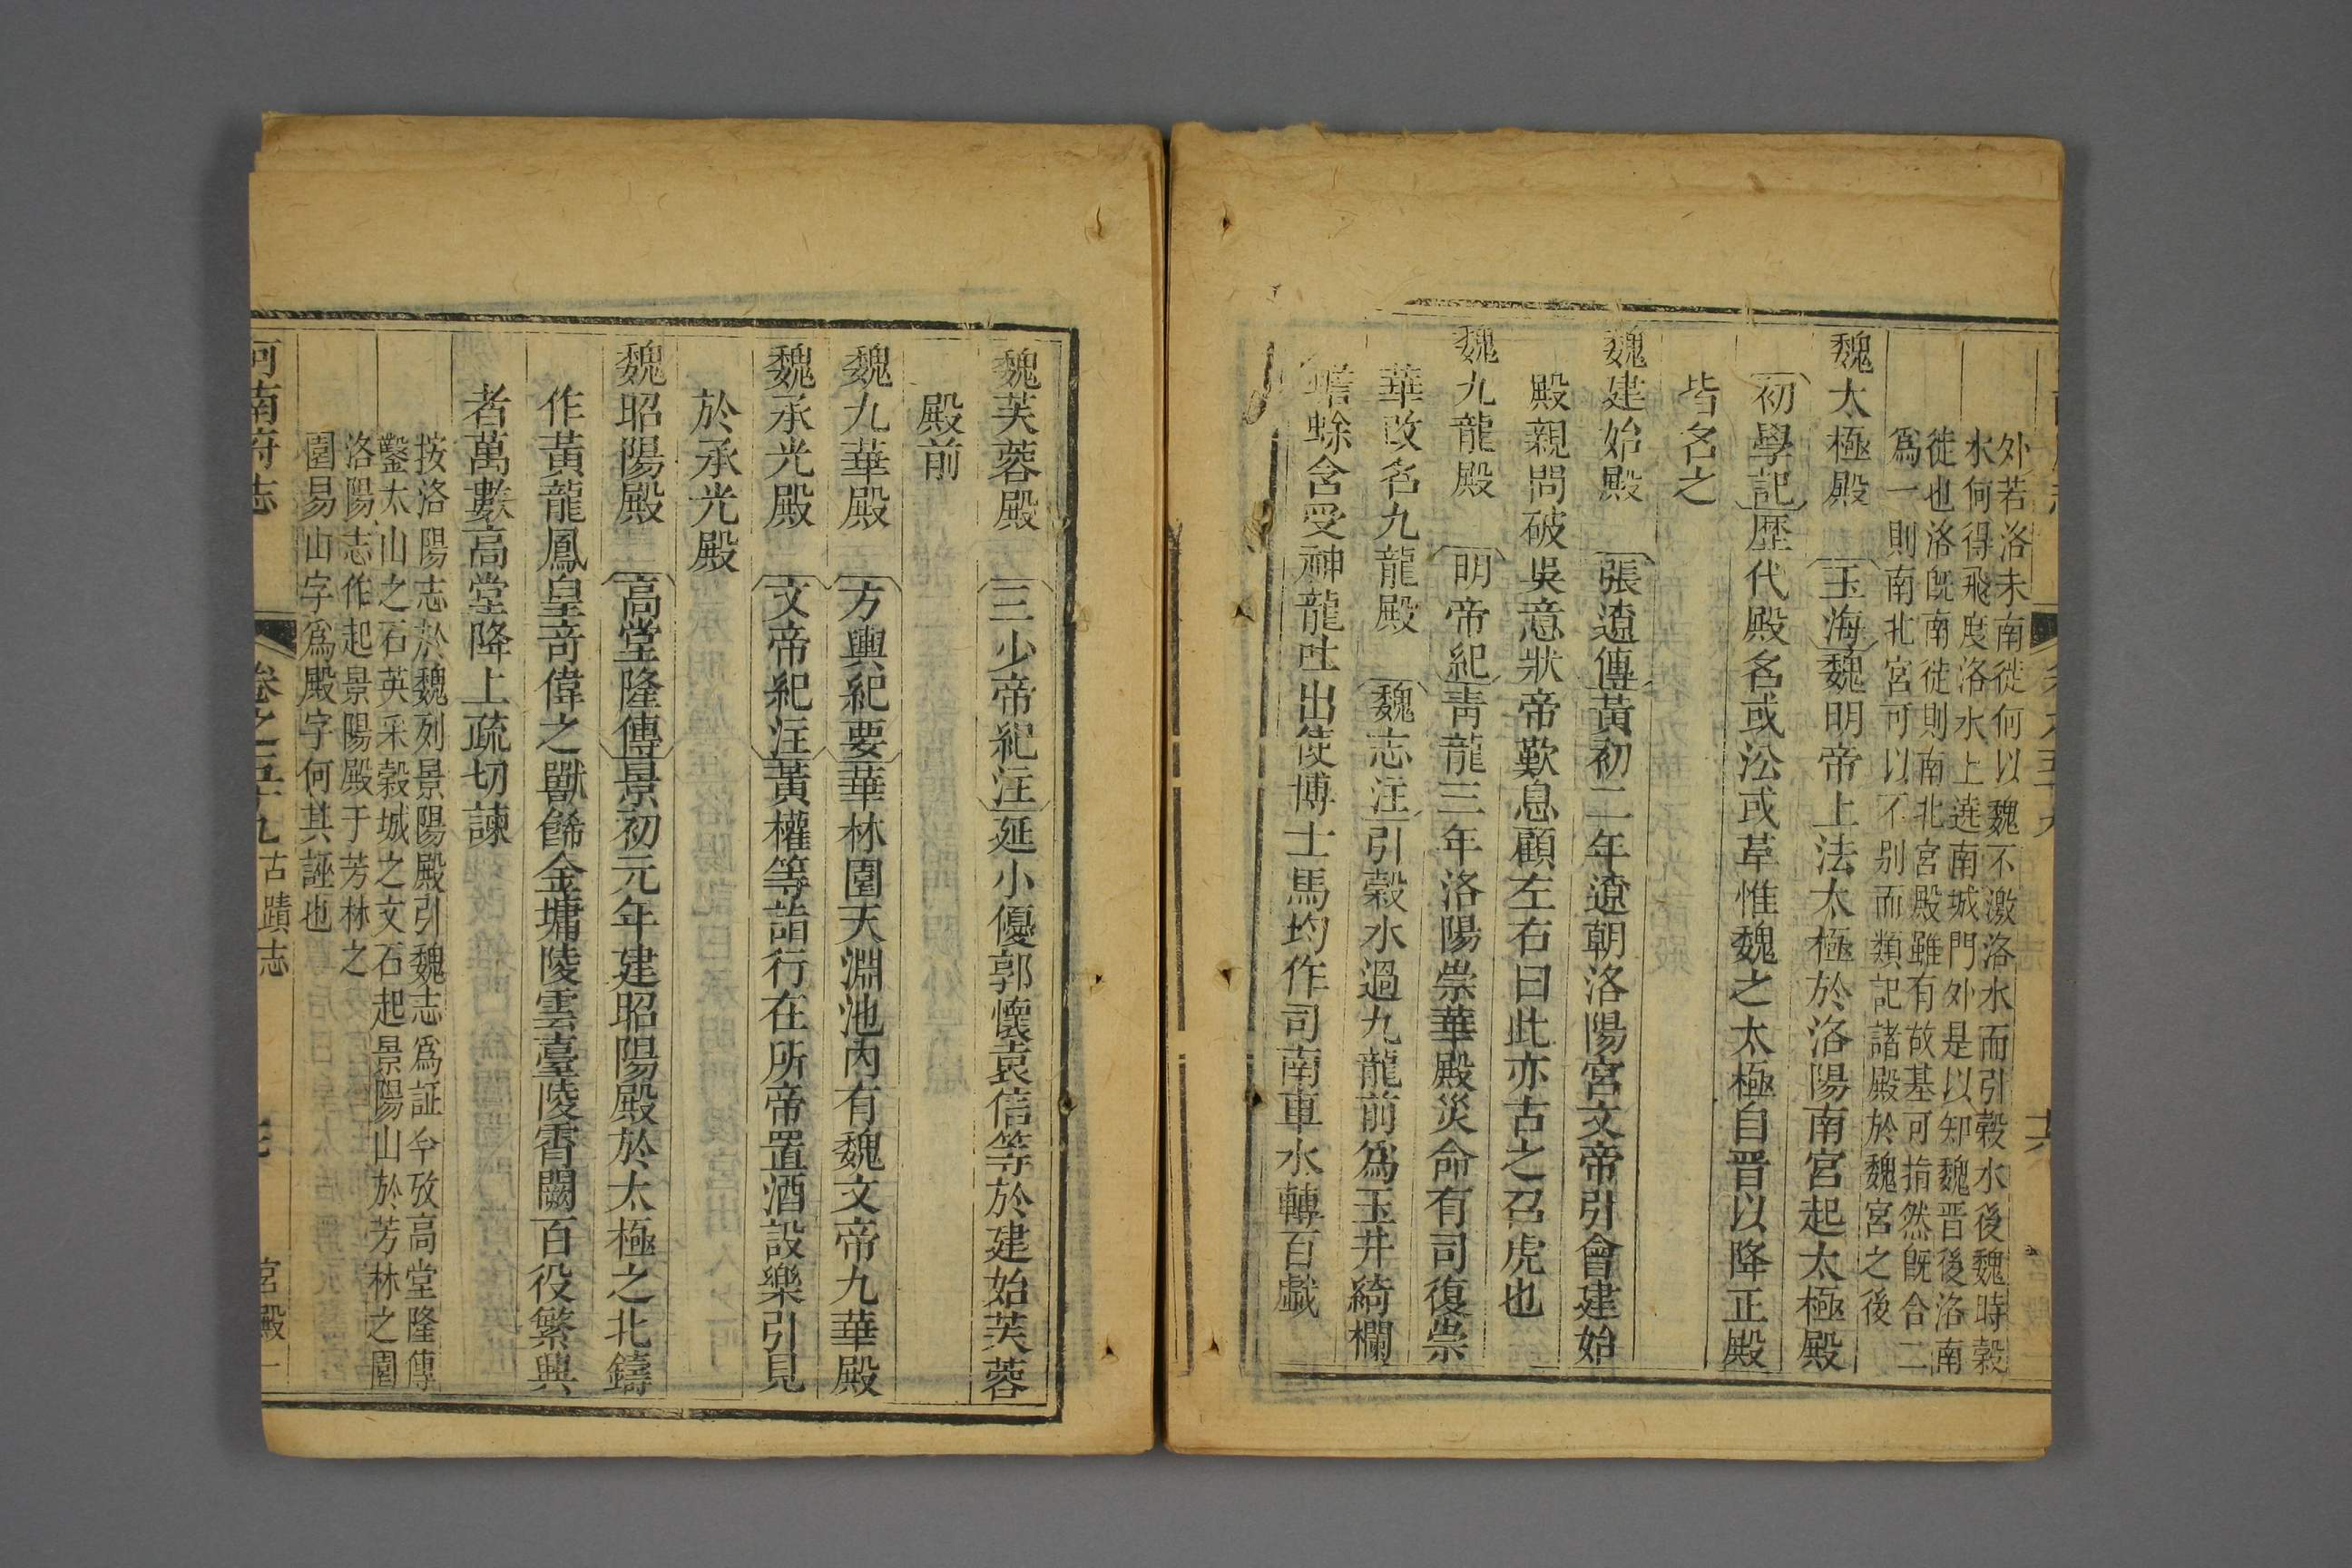 外若洛未南徙何以魏不激洛水而引穀水後魏時穀
水何得飛度洛水上遶南城門外是以知魏晋後洛南
徙也洛旣南徙則南北宮殿雖有故基可指然旣合二
爲一則南北宮可以不别而類記諸殿於魏宮之後
魏太極殿 玉海魏明帝上法太極於洛陽南宮起太極殿
初學記歴代殿名或㳂或革惟魏之太極自晋以降正殿
皆名之
魏建始殿 張遼傳黃初二年遼朝洛陽宮文帝引會建始
殿親問破吳意狀帝歎息顧左右曰此亦古之召虎也
魏九龍殿 明帝紀靑龍三年洛陽崇華殿災命有司復崇
華改名九龍殿 魏志注引穀水過九龍前爲玉井綺欄
蟾蜍含受神龍吐出使博士馬均作司南車水轉百戯
魏芙蓉殿 三少帝紀注延小優郭懷袁信等於建始芙蓉
殿前
魏九華殿 方輿紀要華林園天淵池內有魏文帝九華殿
魏承光殿 文帝紀注黃權等詣行在所帝置酒設樂引見
於承光殿
魏昭陽殿 高堂隆傳景初元年建昭陽殿於太極之北鑄
作黃龍鳳皇奇偉之獸餙金墉陵雲臺陵霄闕百役繁興
者萬數高堂隆上疏切諫
按洛陽志於魏列景陽殿引魏志爲証今攷高堂隆傳
鑿太山之石英采穀城之文石起景陽山於芳林之園
洛陽志作起景陽殿于芳林之
園易山字爲殿字何其誣也
河南府志 卷之五十九 古蹟志 宮殿一